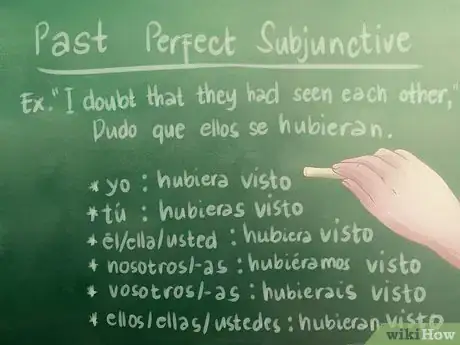 Past Perfect Subjunctive
Ex. "I doubt that they had seen each other,"
Dudo que ellos se hubieran.
* yo : hubiera visto
* tú : hubieras visto
* él/ella/usted : hubiera visto
* nosotros/-as : hubiéramos visto
* vosotros/-as : hubierais visto
* ellos/ellas/ustedes : hubieran visto
wikiHow